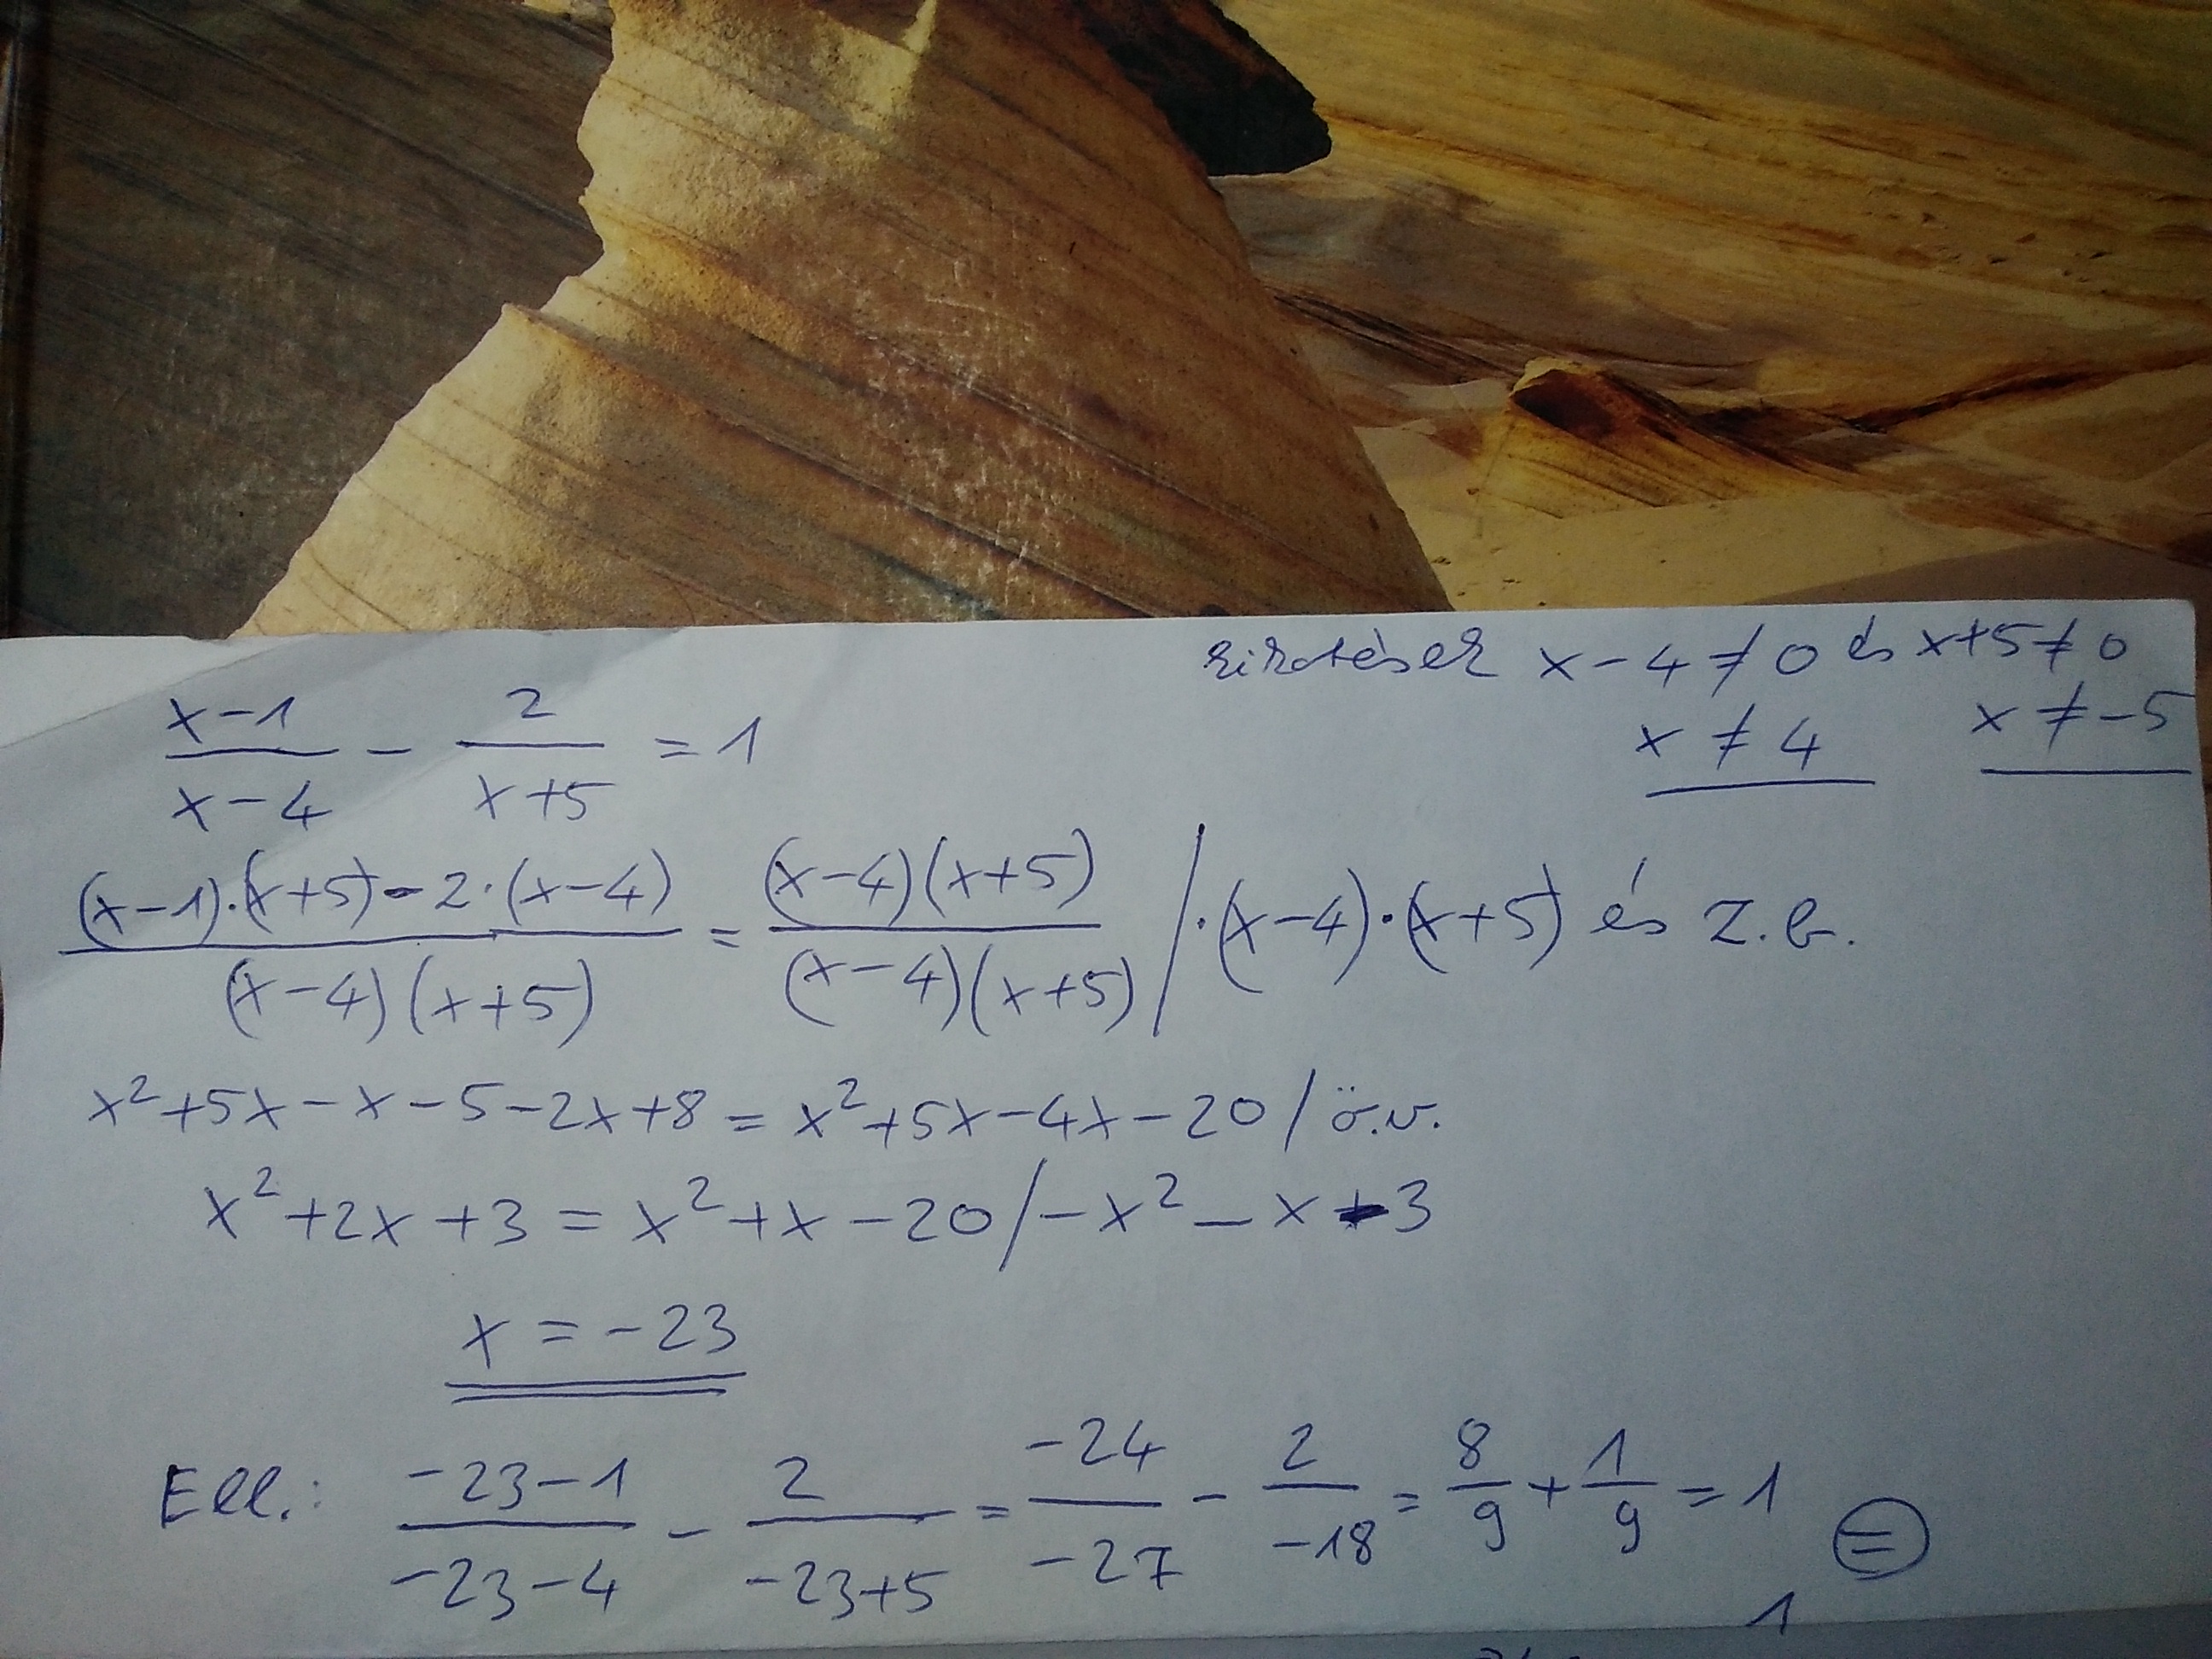 kikötések x-4≠0 és x+5≠0
x≠4 x≠-5
(x-1)/(x-4) - 2/(x+5) = 1
((x-1)·(x+5)-2·(x-4))/((x-4)(x+5)) = ((x-4)(x+5))/((x-4)(x+5)) /·(x-4)·(x+5) és z.b.
x²+5x-x-5-2x+8=x²+5x-4x-20/ö.v.
x²+2x+3=x²+x-20/-x²-x-3
x=-23
Ell.: (-23-1)/(-23-4) - 2/(-23+5) = -24/-27 - 2/-18 = 8/9 + 1/9 = 1 =
1